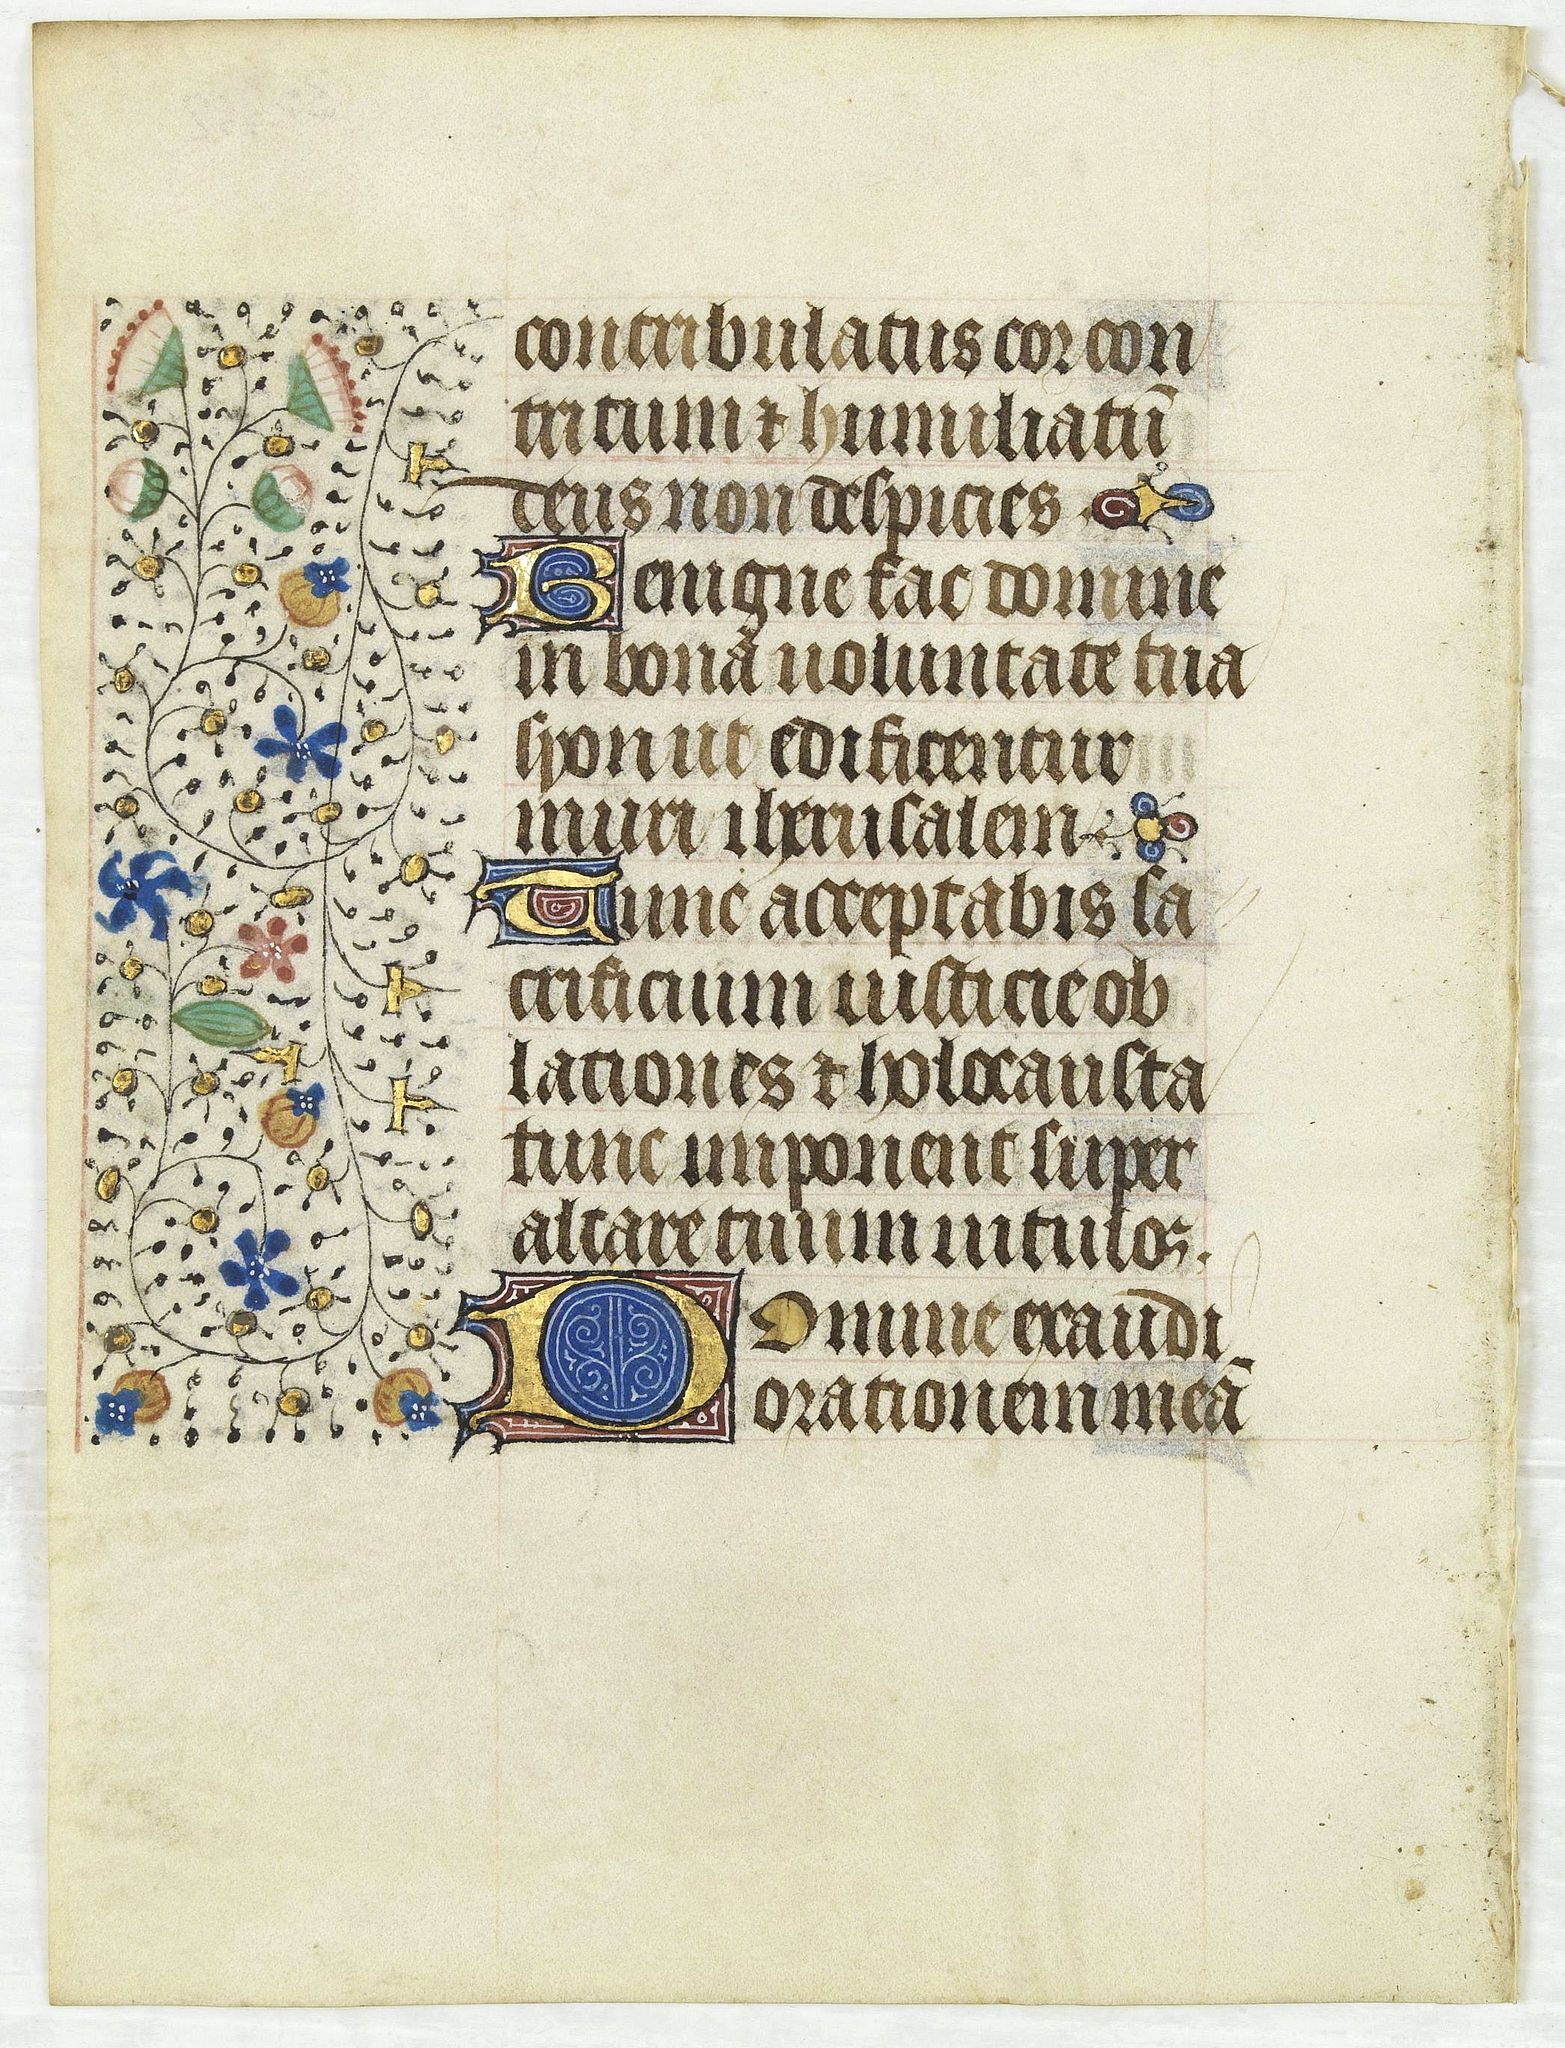 contribulatus cor con
tritum ⁊ humiliatū
deus non despicies
Benigne fac domine
in bona uoluntate tua
syon ut edificentur
muri iherusalem
Tunc acceptabis sa
crificium iusticie ob
lationes ⁊ holocausta
tunc imponent super
altare tuum uitulos.
Domine exaudi
orationem meā